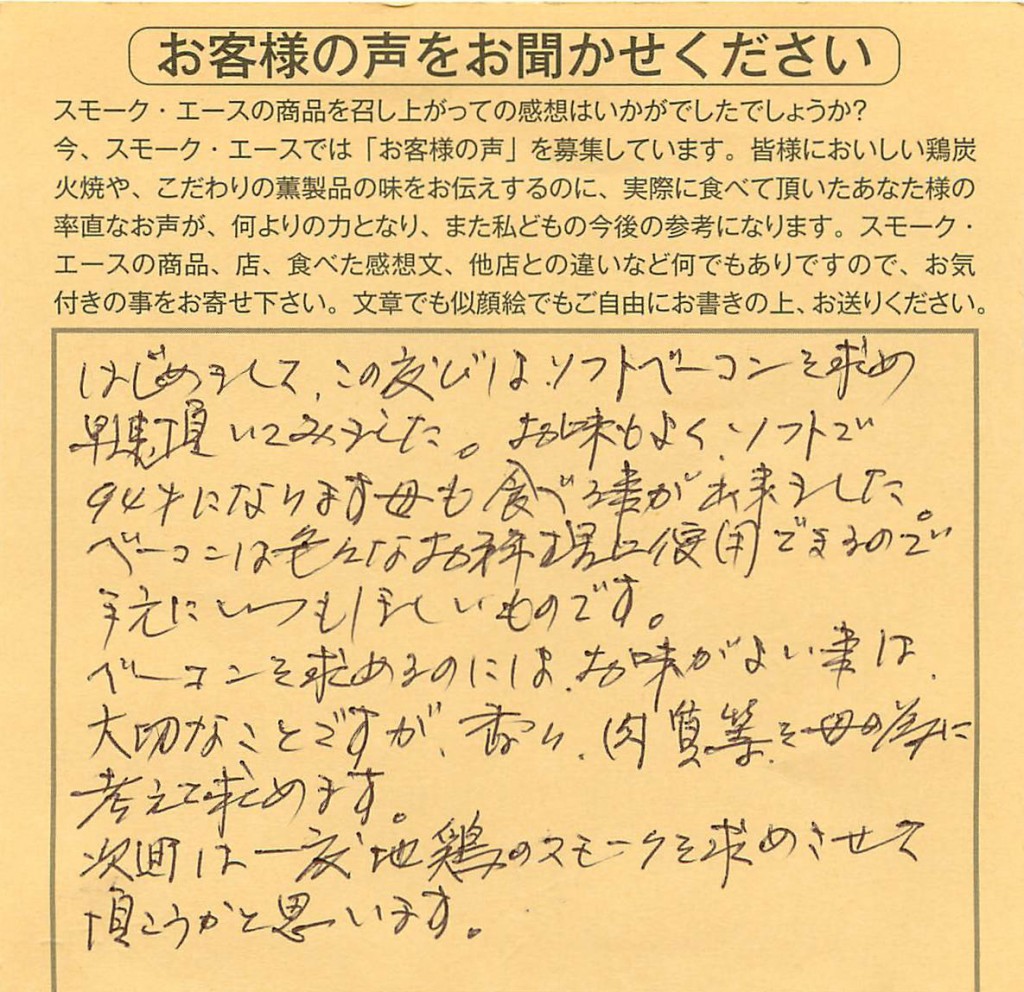 お客様の声をお聞かせください
スモーク・エースの商品を召し上がっての感想はいかがでしたでしょうか?
今、スモーク・エースでは「お客様の声」を募集しています。皆様においしい鶏炭
火焼や、こだわりの薫製品の味をお伝えするのに、実際に食べて頂いたあなた様の
率直なお声が、何よりの力となり、また私どもの今後の参考になります。スモーク・
エースの商品、店、食べた感想文、他店との違いなど何でもありですので、お気
付きの事をお寄せ下さい。文章でも似顔絵でもご自由にお書きの上、お送りください。
はじめまして、この度びは、ソフトベーコンを求め
早速頂いてみました。お味もよく、ソフトで
94才になります母も食べる事が出来ました。
ベーコンは色々なお料理に使用できるので
手元にいつもほしいものです。
ベーコンを求めるのには、お味がよい事は、
大切なことですが、香り、肉質等を母の為に
考えて求めます。
次回は一度地鶏のスモークを求めさせて
頂こうかと思います。